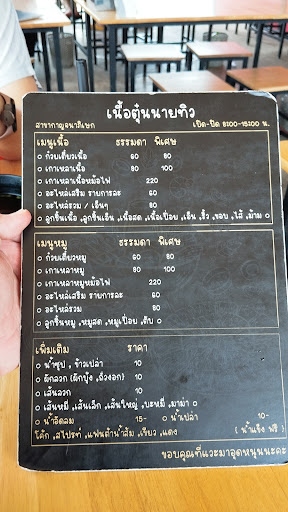 เนื้อตุ๋นนายทิว
สาขากาญจนาภิเษก เปิด-ปิด 8:00-15:00 น.
เมนูเนื้อ ธรรมดา พิเศษ
ก๋วยเตี๋ยวเนื้อ 60 80
เกาเหลาเนื้อ 80 100
เกาเหลาเนื้อหม้อไฟ 220
อะไหล่เสริม รายการละ 60
อะไหล่รวม / เอ็นๆ 80
ลูกชิ้นเนื้อ ,ลูกชิ้นเอ็น ,เนื้อสด ,เนื้อเปื่อย ,เอ็น ,ขั้ว ,ขอบ ,ไส้ ,ม้าม
เมนูหมู ธรรมดา พิเศษ
ก๋วยเตี๋ยวหมู 60 80
เกาเหลาหมู 80 100
เกาเหลาหมูหม้อไฟ 220
อะไหล่เสริม รายการละ 60
อะไหล่รวม 80
ลูกชิ้นหมู ,หมูสด ,หมูเปื่อย ,ตับ
เพิ่มเติม ราคา
น้ำซุป , ข้าวเปล่า 10
ผักลวก (ผักบุ้ง ,ถั่วงอก) 10
เส้นลวก 10
เส้นหมี่ ,เส้นเล็ก ,เส้นใหญ่ ,บะหมี่ ,มาม่า
น้ำอัดลม 15- น้ำเปล่า 10-
โค้ก ,สไปรท์ ,แฟนต้าน้ำส้ม ,เขียว ,แดง ( น้ำแข็ง ฟรี )
ขอบคุณที่แวะมาอุดหนุนนะคะ